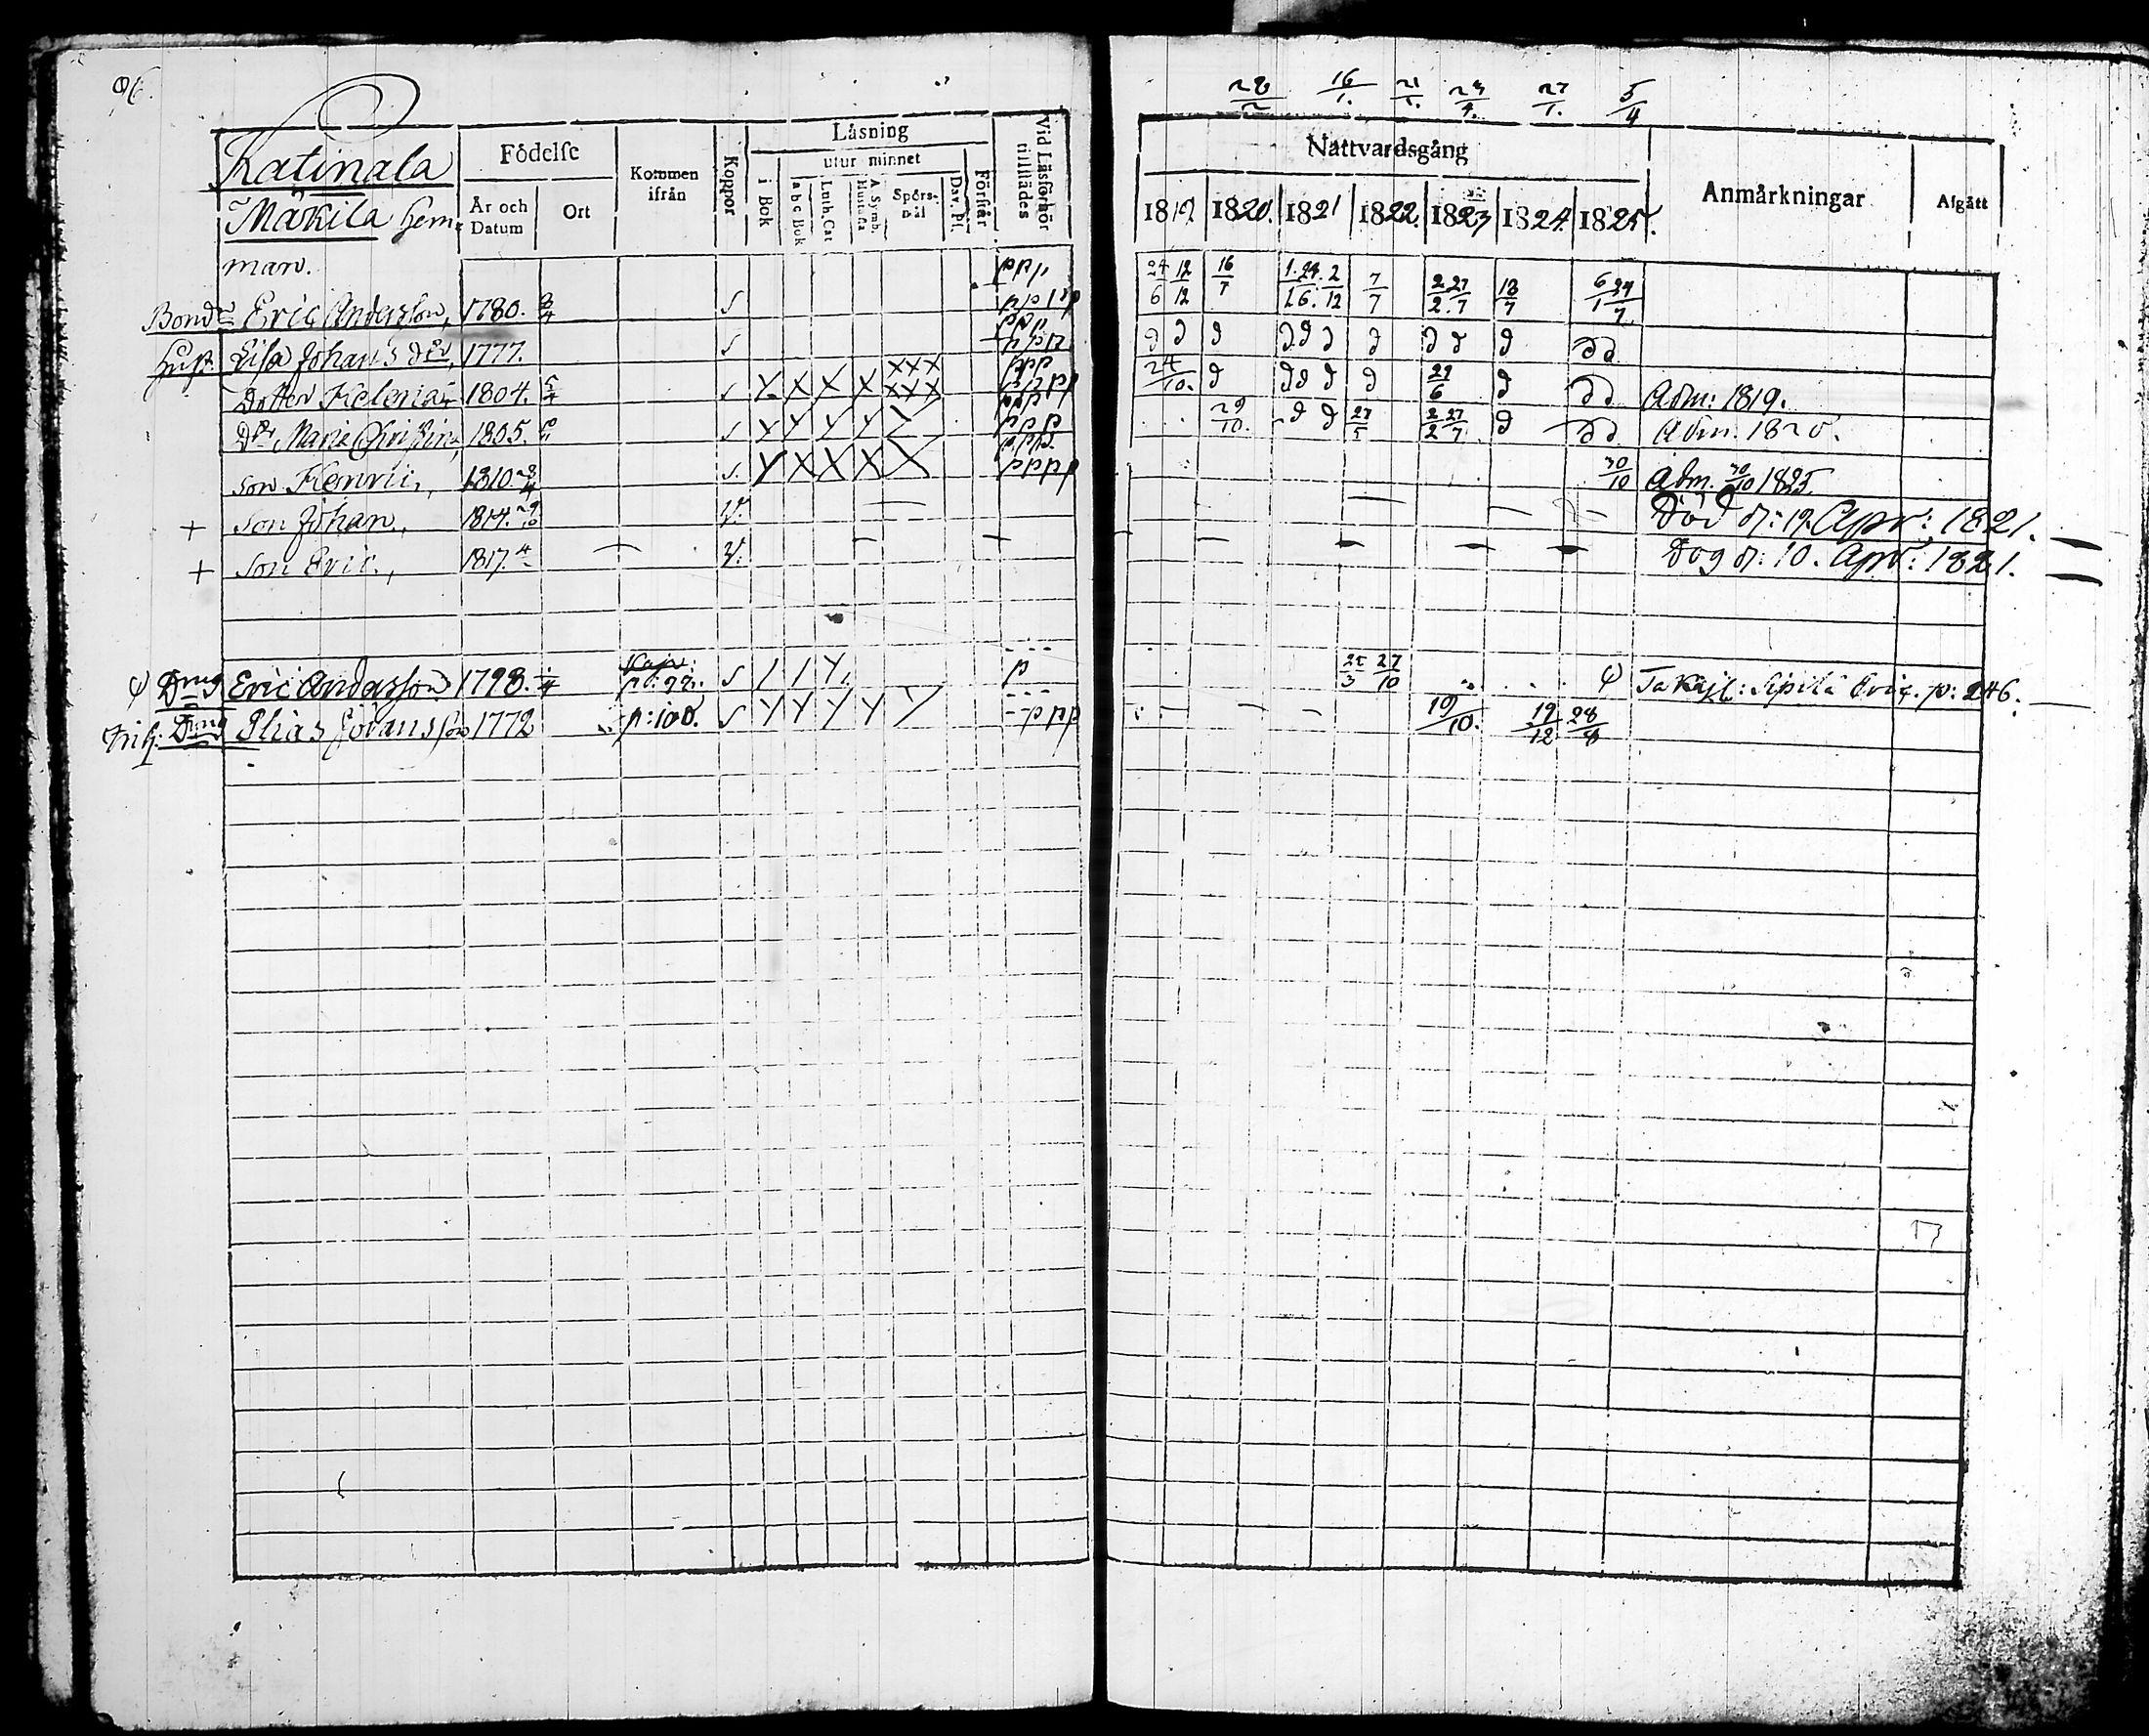 96.
Katinala
Mäkilä Hem-
man.
Födelse
År och Datum
Ort
Kommen ifrån
Koppor
Läsning
utur minnet
i Bok
a b c Bok
Luth. Cat
A. Symb. Hustafla
Spörs-mål
Dav. Ps.
Förstår
Vid Läsförhör tillstädes
Bond Eric Andersson, 1780. s ppp
Hust. Lisa Johans dr, 1777. s ppp
Dotter Helena 1804. s Y X X X XXX ppp
Dr Maria Christina, 1805. s Y Y Y Y ppp
Son Henric, 1810. s. Y X X X X pppp
+ Son Johan, 1814. V.
+ Son Eric, 1817. V.
φ Drng Eric Andersson 1798. p: 92. s p
Drng Elias Johansson 1772 p: 100. s Y Y Y Y Y ppp
28/2 16/1. 21/1. 27/1. 5/4
Nattvardsgång
1819 1820. 1821 1822. 1823 1824. 1825.
Anmärkningar
Afgått
24/6 12/12 16/7 7/7 2/2 27/7 18/7
24/10. 29/6 Adm: 1819.
29/10. 27/5 2/2 27/7 Adm. 1820.
30/10 Adm. 30/10 1825.
Död d: 19. Apr: 1821.
Dog d: 10. Apr: 1821.
22/3 27/10 φ p: 246.
19/10. 19/12 28/8